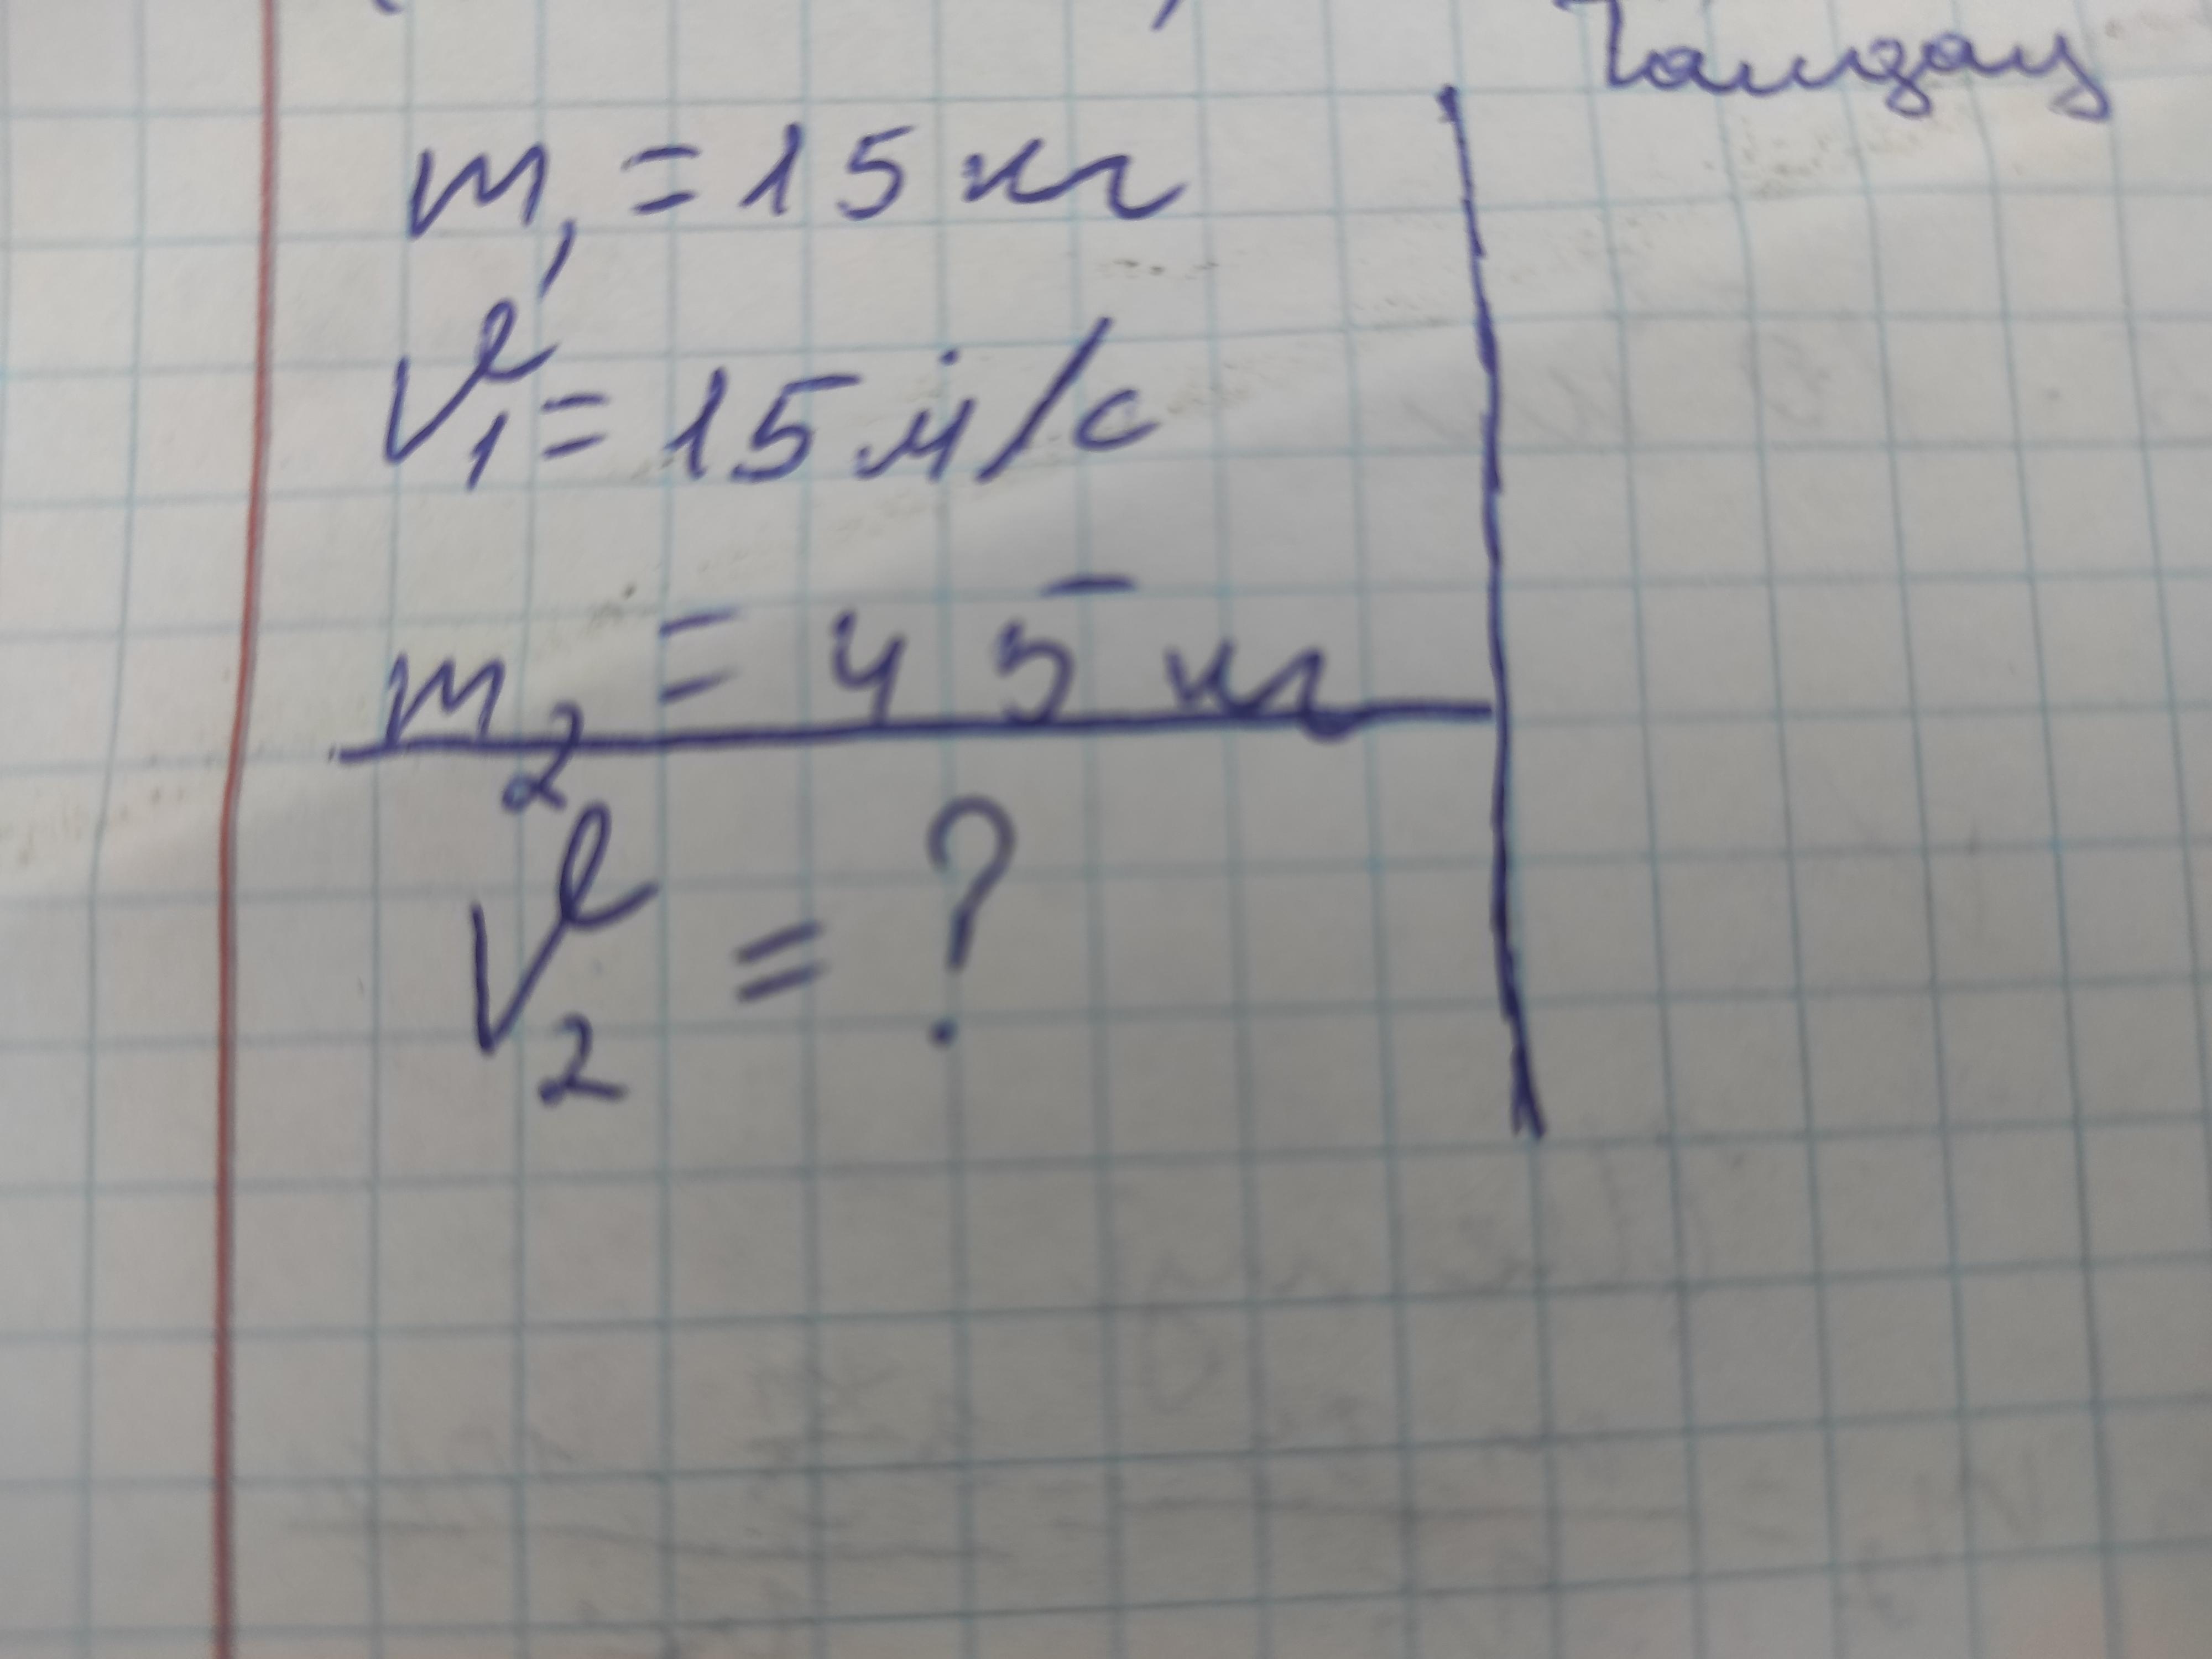 Талдау
m₁ = 15 кг
v₁ = 15 м/с
m₂ = 45 кг
v₂ = ?